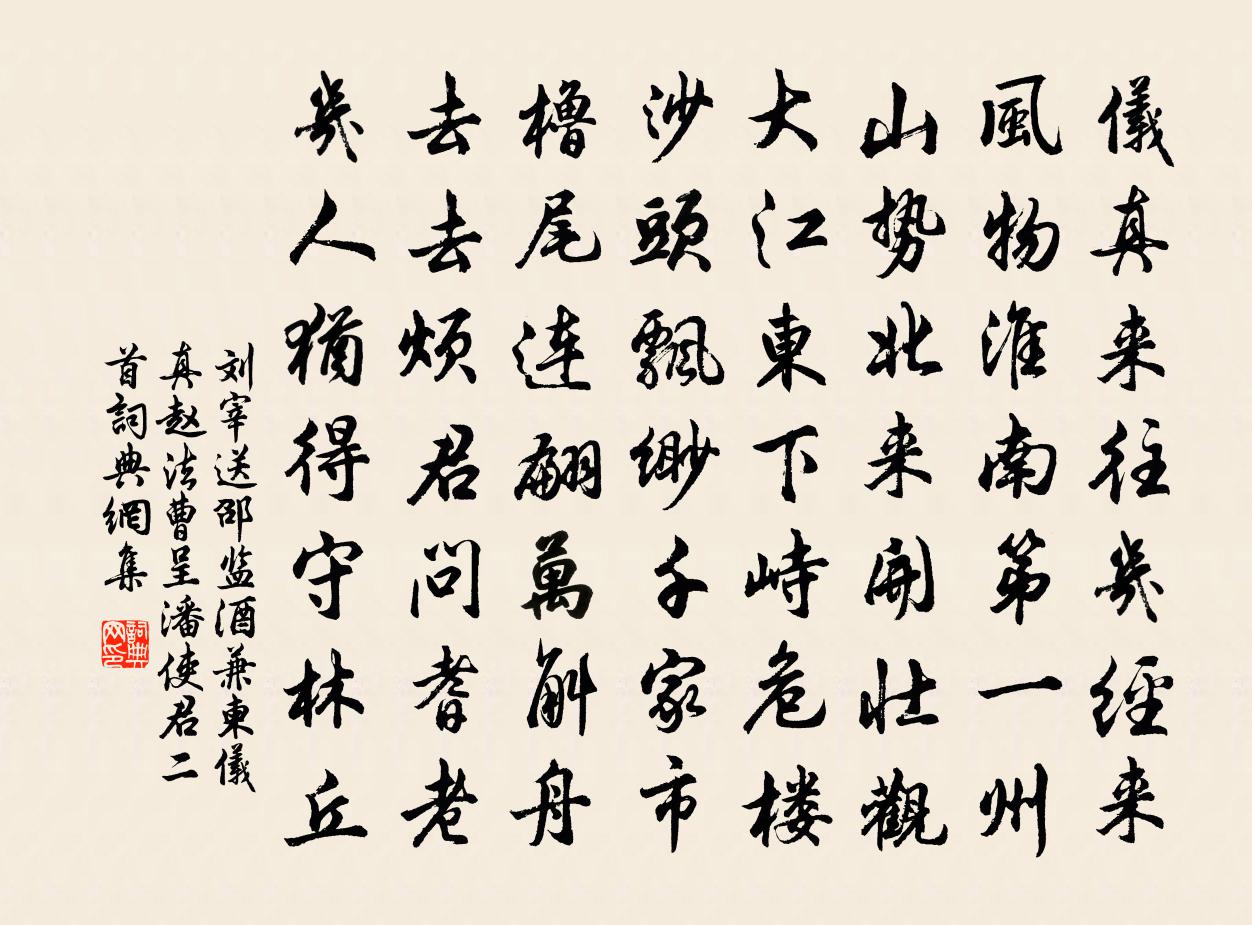 儀真来往幾經来
風物淮南第一州
山勢北来開壯觀
大江東下峙危楼
沙頭飄緲千家市
檣尾連翩萬斛舟
去去煩君問耆老
幾人猶得守林丘
刘宰送邵监酒兼柬儀
真赵法曹呈潘使君二
首詞典網集
詞典网印